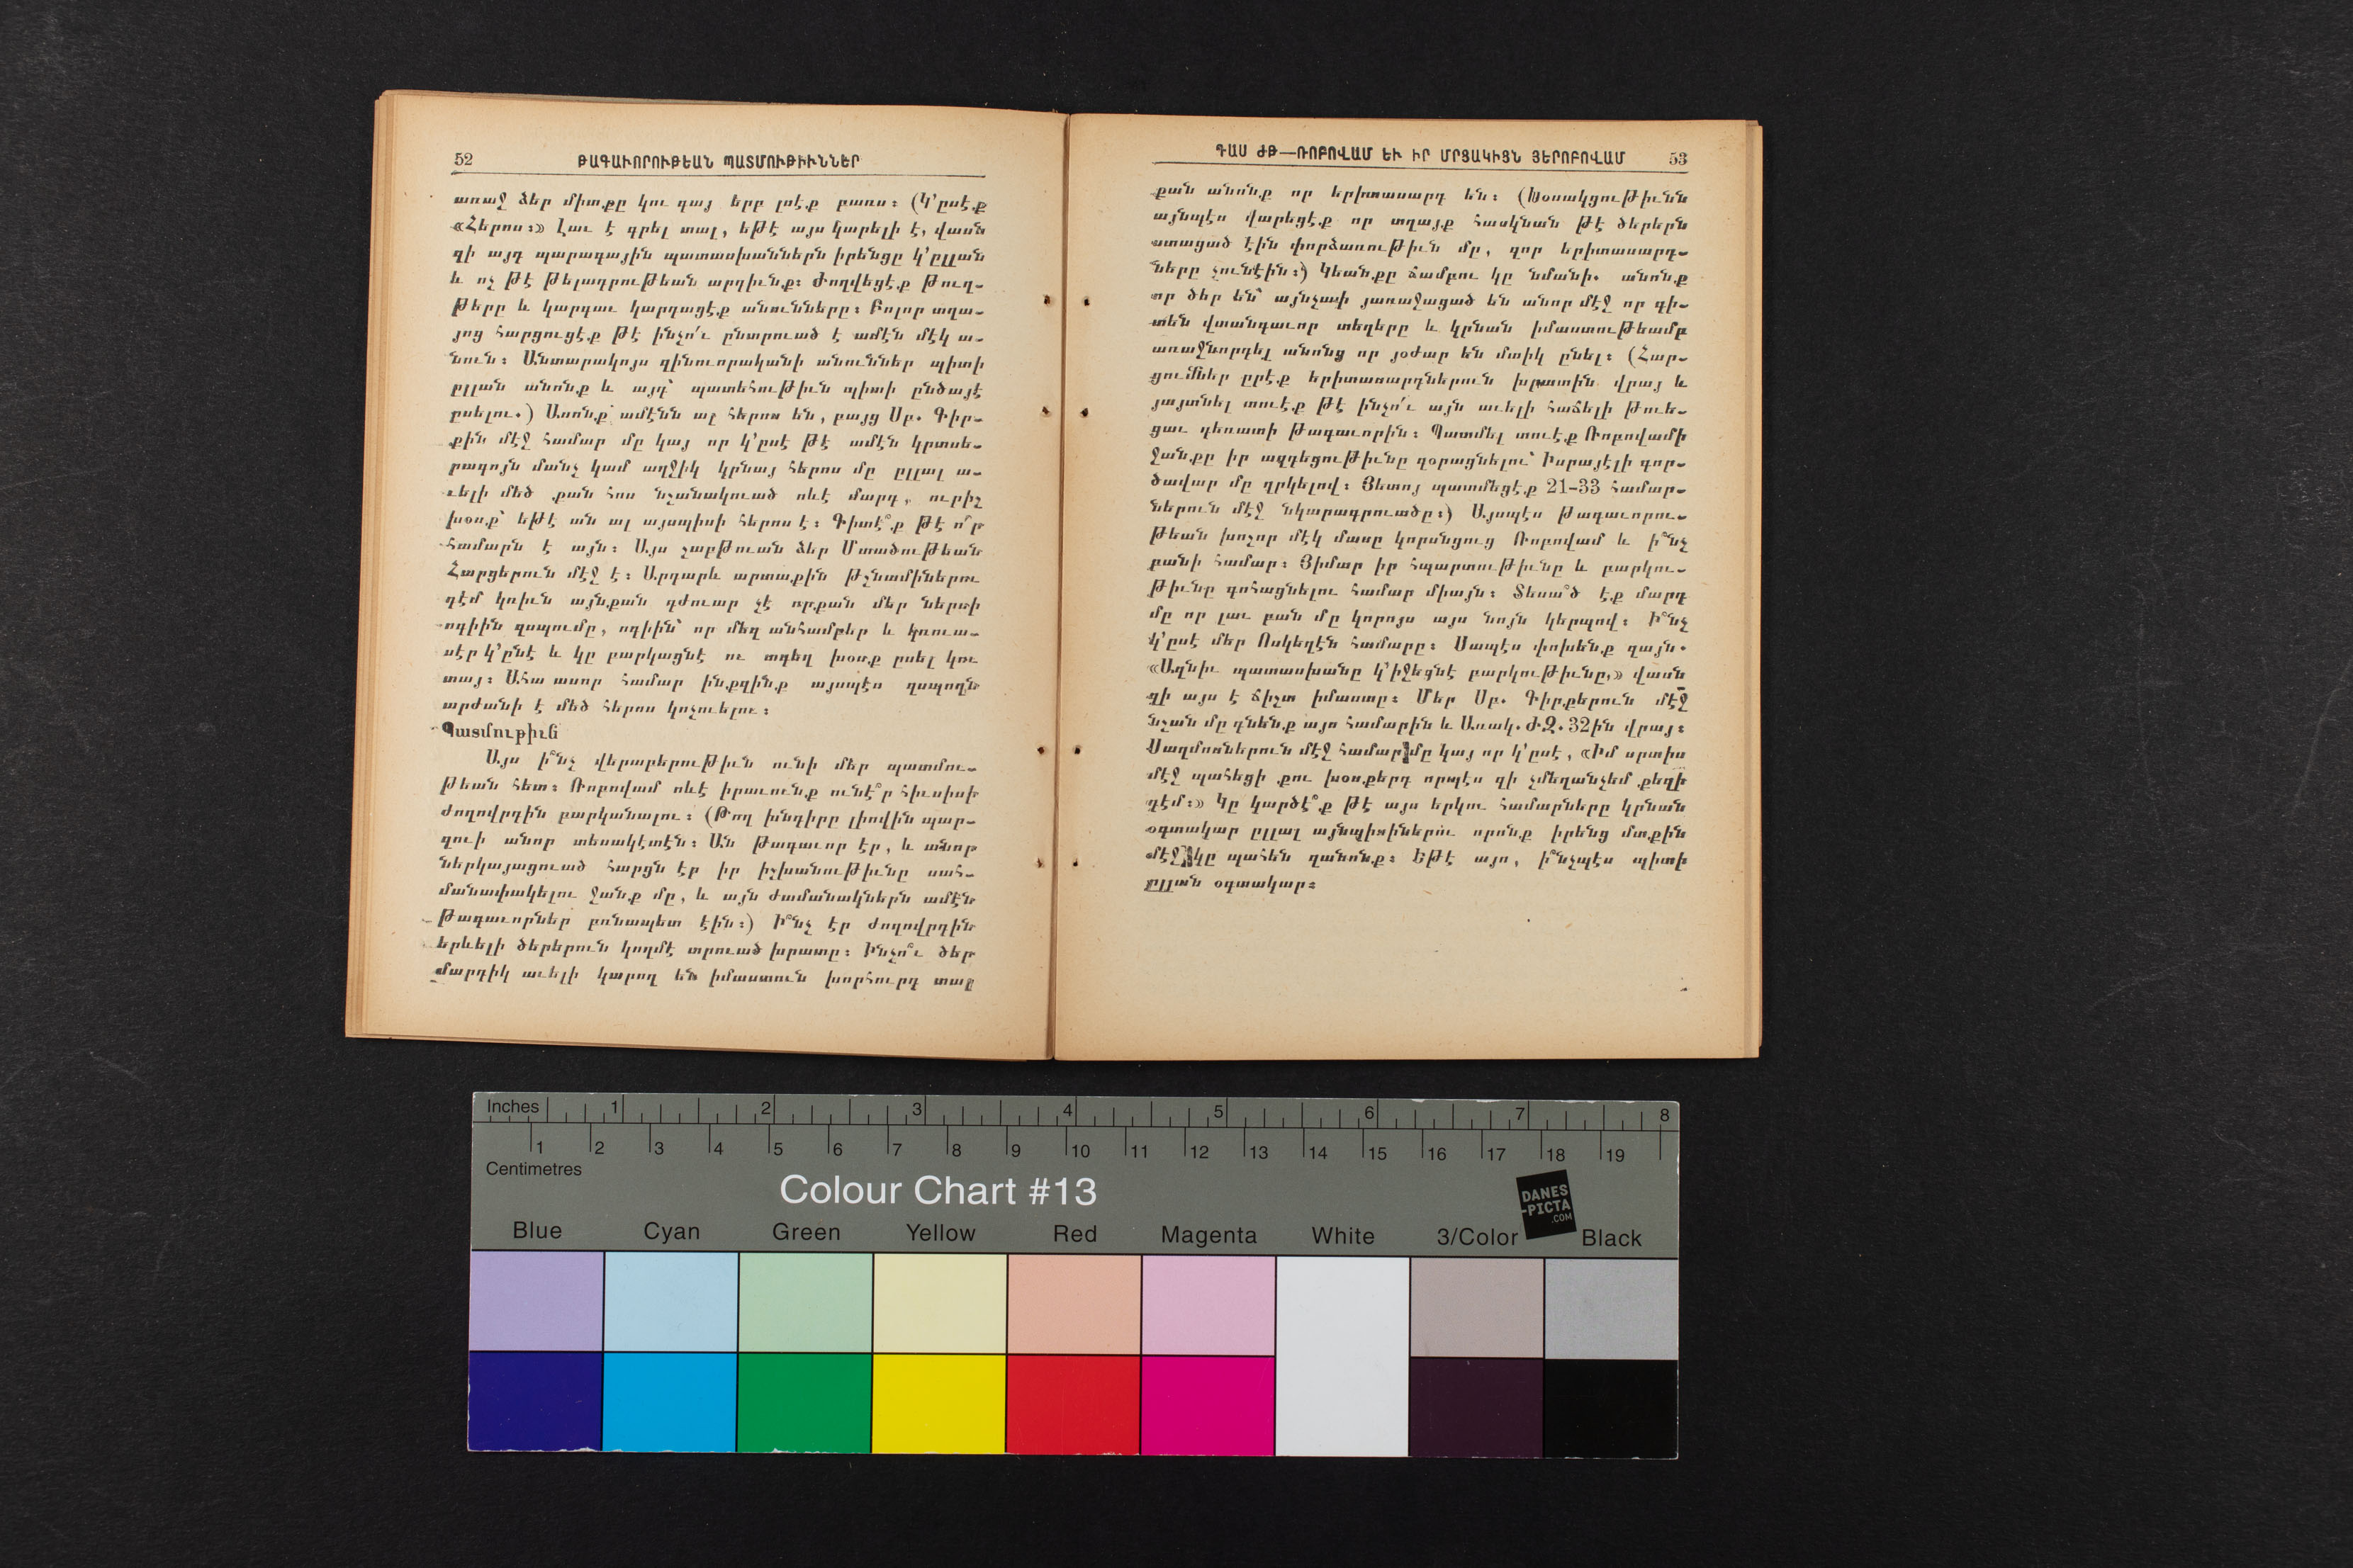 52 ԹԱԳԱՒՈՐՈՒԹԵԱՆ ՊԱՏՄՈՒԹԻՒՆՆԵՐ
առաջ ձեր միտքը կու գայ երբ լսէք բառս։ (Կ՚ըսէք
«Հերոս։» Լաւ է գրել տալ, եթէ այս կարելի է, վասն
զի այդ պարագային պատասխաններն իրենցը կ՚ըլլան
և ոչ թէ թելադրութեան արդիւնք։ Ժողվեցէք թուղ-
թերը և կարգաւ կարդացէք անունները։ Բոլոր տղա-
յոց հարցուցէք թէ ինչո՛ւ ընտրուած է ամէն մէկ ա-
նուն։ Անտարակոյս զինուորականի անուններ պիտի
ըլլան անոնք և այդ՝ պատեհութիւն պիտի ընծայէ
ըսելու.) Ասոնք ամէնն ալ հերոս են, բայց Սբ. Գիր-
քին մէջ համար մը կայ որ կ՚ըսէ թէ ամէն կրտսե-
րագոյն մանչ կամ աղջիկ կրնայ հերոս մը ըլլալ ա-
ւելի մեծ քան հոս նշանակուած ոևէ մարդ, ուրիշ
խօսք՝ եթէ ան ալ այսպիսի հերոս է։ Գիտէ՞ք թէ ո՞ր
համարն է այն։ Այս շաբթուան ձեր Մտածութեան
Հարցերուն մէջ է։ Արդարև արտաքին թշնամիներու
դէմ կռիւն այնքան դժուար չէ որքան մեր ներսի
ոգիին զսպումը, ոգիին՝ որ մեզ անհամբեր և կռուա-
սէր կ՚ընէ և կը բարկացնէ ու տգեղ խօսք ըսել կու
տայ։ Ահա ասոր համար ինքզինք այսպէս զսպողն
արժանի է մեծ հերոս կոչուելու։
Պատմութիւն
Այս ի՞նչ վերաբերութիւն ունի մեր պատմու-
թեան հետ։ Ռոբովամ ոևէ իրաւունք ունէ՞ր հիւսիսի
ժողովրդին բարկանալու։ (Թող խնդիրը լիովին պար-
զուի անոր տեսակէտէն։ Ան թագաւոր էր, և անոր
ներկայացուած հարցն էր իր իշխանութիւնը սահ-
մանափակելու ջանք մը, և այն ժամանակներն ամէն
թագաւորներ բռնապետ էին։) Ի՞նչ էր ժողովրդին
երևելի ծերերուն կողմէ տրուած խրատը։ Ինչո՞ւ ծեր
մարդիկ աւելի կարող են իմաստուն խորհուրդ տալ
ԴԱՍ ԺԹ—ՌՈԲՈՎԱՄ ԵՒ ԻՐ ՄՐՑԱԿԻՑՆ ՅԵՐՈԲՈՎԱՄ 53
քան անոնք որ երիտասարդ են։ (Խօսակցութիւնն
այնպէս վարեցէք որ տղայք հասկնան թէ ծերերն
ստացած էին փորձառութիւն մը, զոր երիտասարդ-
ները չունէին։) Կեանքը ճամբու կը նմանի. անոնք
որ ծեր են՝ այնչափ յառաջացած են անոր մէջ որ գի-
տեն վտանգաւոր տեղերը և կրնան իմաստութեամբ
առաջնորդել անոնց որ յօժար են մտիկ ընել։ (Հար-
ցումներ ըրէք երիտասարդներուն խրատին վրայ և
յայտնել տուէք թէ ինչո՛ւ այն աւելի հաճելի թուե-
ցաւ դեռատի թագաւորին։ Պատմել տուէք Ռոբովամի
ջանքը իր ազդեցութիւնը զօրացնելու՝ Իսրայէլի գոր-
ծավար մը ղրկելով։ Յետոյ պատմեցէք 21-33 համար-
ներուն մէջ նկարագրուածը։) Այսպէս թագաւորու-
թեան խոշոր մէկ մասը կորսնցուց Ռոբովամ և ի՞նչ
բանի համար։ Յիմար իր հպարտութիւնը և բարկու-
թիւնը գոհացնելու համար միայն։ Տեսա՞ծ էք մարդ
մը որ լաւ բան մը կորոյս այս նոյն կերպով։ Ի՞նչ
կ՚ըսէ մեր Ոսկեղէն համարը։ Սապէս փոխենք զայն.
«Ազնիւ պատասխանը կ՚իջեցնէ բարկութիւնը,» վասն
զի այս է ճիշտ իմաստը։ Մեր Սբ. Գիրքերուն մէջ
նշան մը դնենք այս համարին և Առակ. ԺԶ. 32ին վրայ։
Սաղմոսներուն մէջ համար մը կայ որ կ՚ըսէ, «Իմ սրտիս
մէջ պահեցի քու խօսքերդ որպէս զի չմեղանչեմ քեզի
դէմ։» Կը կարծէ՞ք թէ այս երկու համարները կրնան
օգտակար ըլլալ այնպիսիներու որոնք իրենց մտքին
մէջ կը պահեն զանոնք։ Եթէ այո, ի՞նչպէս պիտի
ըլլան օգտակար։
Inches 1 2 3 4 5 6 7 8
1 2 3 4 5 6 7 8 9 10 11 12 13 14 15 16 17 18 19
Centimetres
Colour Chart #13
DANES
-PICTA
.COM
Blue Cyan Green Yellow Red Magenta White 3/Color Black